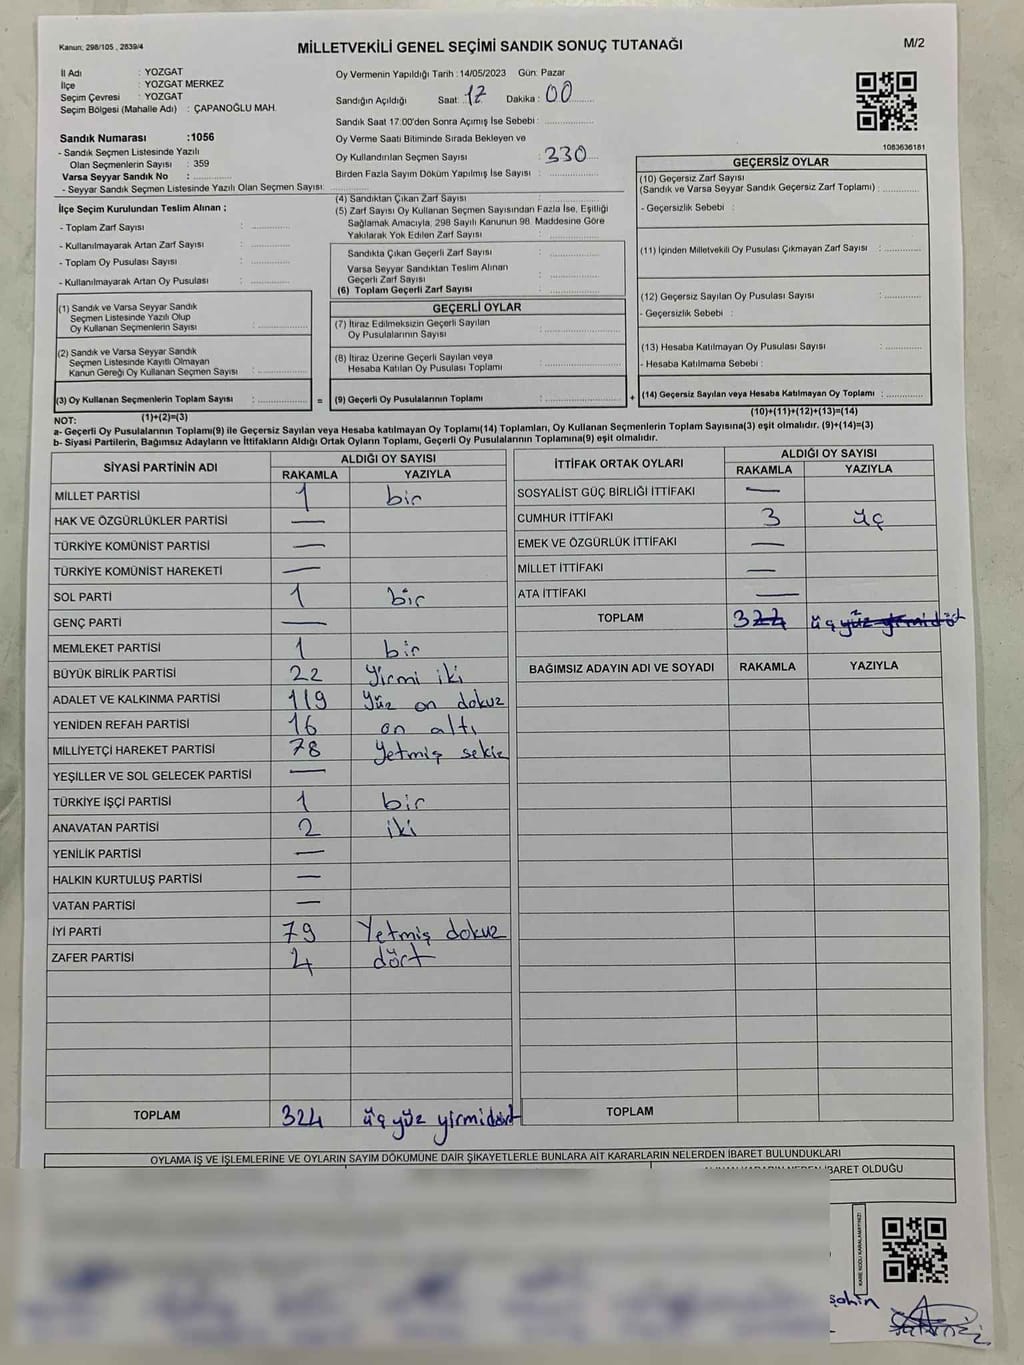 Kanun; 298/105 , 2839/4
MİLLETVEKİLİ GENEL SEÇİMİ SANDIK SONUÇ TUTANAĞI
M/2
İl Adı : YOZGAT
İlçe : YOZGAT MERKEZ
Seçim Çevresi : YOZGAT
Seçim Bölgesi (Mahalle Adı) : ÇAPANOĞLU MAH.
Sandık Numarası :1056
- Sandık Seçmen Listesinde Yazılı
Olan Seçmenlerin Sayısı : 359
Varsa Seyyar Sandık No :
- Seyyar Sandık Seçmen Listesinde Yazılı Olan Seçmen Sayısı:
Oy Vermenin Yapıldığı Tarih : 14/05/2023 Gün: Pazar
Sandığın Açıldığı Saat: 17 Dakika : 00
Sandık Saat 17:00'den Sonra Açılmış İse Sebebi :
Oy Verme Saati Bitiminde Sırada Bekleyen ve
Oy Kullandırılan Seçmen Sayısı : 330
Birden Fazla Sayım Döküm Yapılmış İse Sayısı :
1083636181
İlçe Seçim Kurulundan Teslim Alınan ;
- Toplam Zarf Sayısı :
- Kullanılmayarak Artan Zarf Sayısı :
- Toplam Oy Pusulası Sayısı :
- Kullanılmayarak Artan Oy Pusulası :
(1) Sandık ve Varsa Seyyar Sandık
Seçmen Listesinde Yazılı Olup
Oy Kullanan Seçmenlerin Sayısı :
(2) Sandık ve Varsa Seyyar Sandık
Seçmen Listesinde Kayıtlı Olmayan
Kanun Gereği Oy Kullanan Seçmen Sayısı :
(3) Oy Kullanan Seçmenlerin Toplam Sayısı : =
(1)+(2)=(3)
(4) Sandıktan Çıkan Zarf Sayısı :
(5) Zarf Sayısı Oy Kullanan Seçmen Sayısından Fazla İse, Eşitliği
Sağlamak Amacıyla, 298 Sayılı Kanunun 98. Maddesine Göre
Yakılarak Yok Edilen Zarf Sayısı :
Sandıkta Çıkan Geçerli Zarf Sayısı :
Varsa Seyyar Sandıktan Teslim Alınan
Geçerli Zarf Sayısı :
(6) Toplam Geçerli Zarf Sayısı :
GEÇERLİ OYLAR
(7) İtiraz Edilmeksizin Geçerli Sayılan
Oy Pusulalarının Sayısı :
(8) İtiraz Üzerine Geçerli Sayılan veya
Hesaba Katılan Oy Pusulası Toplamı :
(9) Geçerli Oy Pusulalarının Toplamı : +
GEÇERSİZ OYLAR
(10) Geçersiz Zarf Sayısı
(Sandık ve Varsa Seyyar Sandık Geçersiz Zarf Toplamı) :
- Geçersizlik Sebebi :
(11) İçinden Milletvekili Oy Pusulası Çıkmayan Zarf Sayısı :
(12) Geçersiz Sayılan Oy Pusulası Sayısı :
- Geçersizlik Sebebi :
(13) Hesaba Katılmayan Oy Pusulası Sayısı :
- Hesaba Katılmama Sebebi :
(14) Geçersiz Sayılan veya Hesaba Katılmayan Oy Toplamı :
(10)+(11)+(12)+(13)=(14)
NOT:
a- Geçerli Oy Pusulalarının Toplamı(9) ile Geçersiz Sayılan veya Hesaba katılmayan Oy Toplamı(14) Toplamları, Oy Kullanan Seçmenlerin Toplam Sayısına(3) eşit olmalıdır. (9)+(14)=(3)
b- Siyasi Partilerin, Bağımsız Adayların ve İttifakların Aldığı Ortak Oyların Toplamı, Geçerli Oy Pusulalarının Toplamına(9) eşit olmalıdır.
SİYASİ PARTİNİN ADI
ALDIĞI OY SAYISI
RAKAMLA YAZIYLA
MİLLET PARTİSİ 1 bir
HAK VE ÖZGÜRLÜKLER PARTİSİ —
TÜRKİYE KOMÜNİST PARTİSİ —
TÜRKİYE KOMÜNİST HAREKETİ —
SOL PARTİ 1 bir
GENÇ PARTİ —
MEMLEKET PARTİSİ 1 bir
BÜYÜK BİRLİK PARTİSİ 22 yirmi iki
ADALET VE KALKINMA PARTİSİ 119 Yüz on dokuz
YENİDEN REFAH PARTİSİ 16 on altı
MİLLİYETÇİ HAREKET PARTİSİ 78 Yetmiş sekiz
YEŞİLLER VE SOL GELECEK PARTİSİ —
TÜRKİYE İŞÇİ PARTİSİ 1 bir
ANAVATAN PARTİSİ 2 iki
YENİLİK PARTİSİ —
HALKIN KURTULUŞ PARTİSİ —
VATAN PARTİSİ —
İYİ PARTİ 79 Yetmiş dokuz
ZAFER PARTİSİ 4 dört
TOPLAM 324 üç yüz yirmidört
İTTİFAK ORTAK OYLARI
ALDIĞI OY SAYISI
RAKAMLA YAZIYLA
SOSYALİST GÜÇ BİRLİĞİ İTTİFAKI —
CUMHUR İTTİFAKI 3 üç
EMEK VE ÖZGÜRLÜK İTTİFAKI —
MİLLET İTTİFAKI —
ATA İTTİFAKI —
TOPLAM 324 üç yüz yirmidört
BAĞIMSIZ ADAYIN ADI VE SOYADI RAKAMLA YAZIYLA
TOPLAM
OYLAMA İŞ VE İŞLEMLERİNE VE OYLARIN SAYIM DÖKÜMÜNE DAİR ŞİKAYETLERLE BUNLARA AİT KARARLARIN NELERDEN İBARET BULUNDUKLARI
İBARET OLDUĞU
KARE KODU KARALAMAYINIZ!
şahin